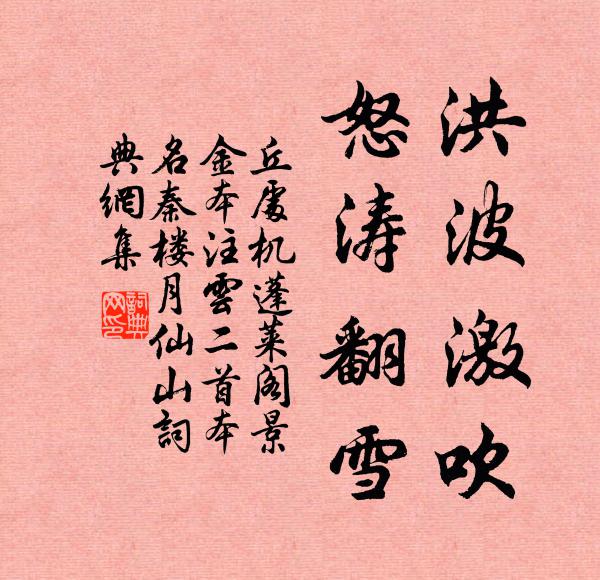 洪波激吹
怒涛翻雪
丘處机蓬莱阁景
金本注雲二首本
名秦楼月仙山詞
典網集
詞典网印